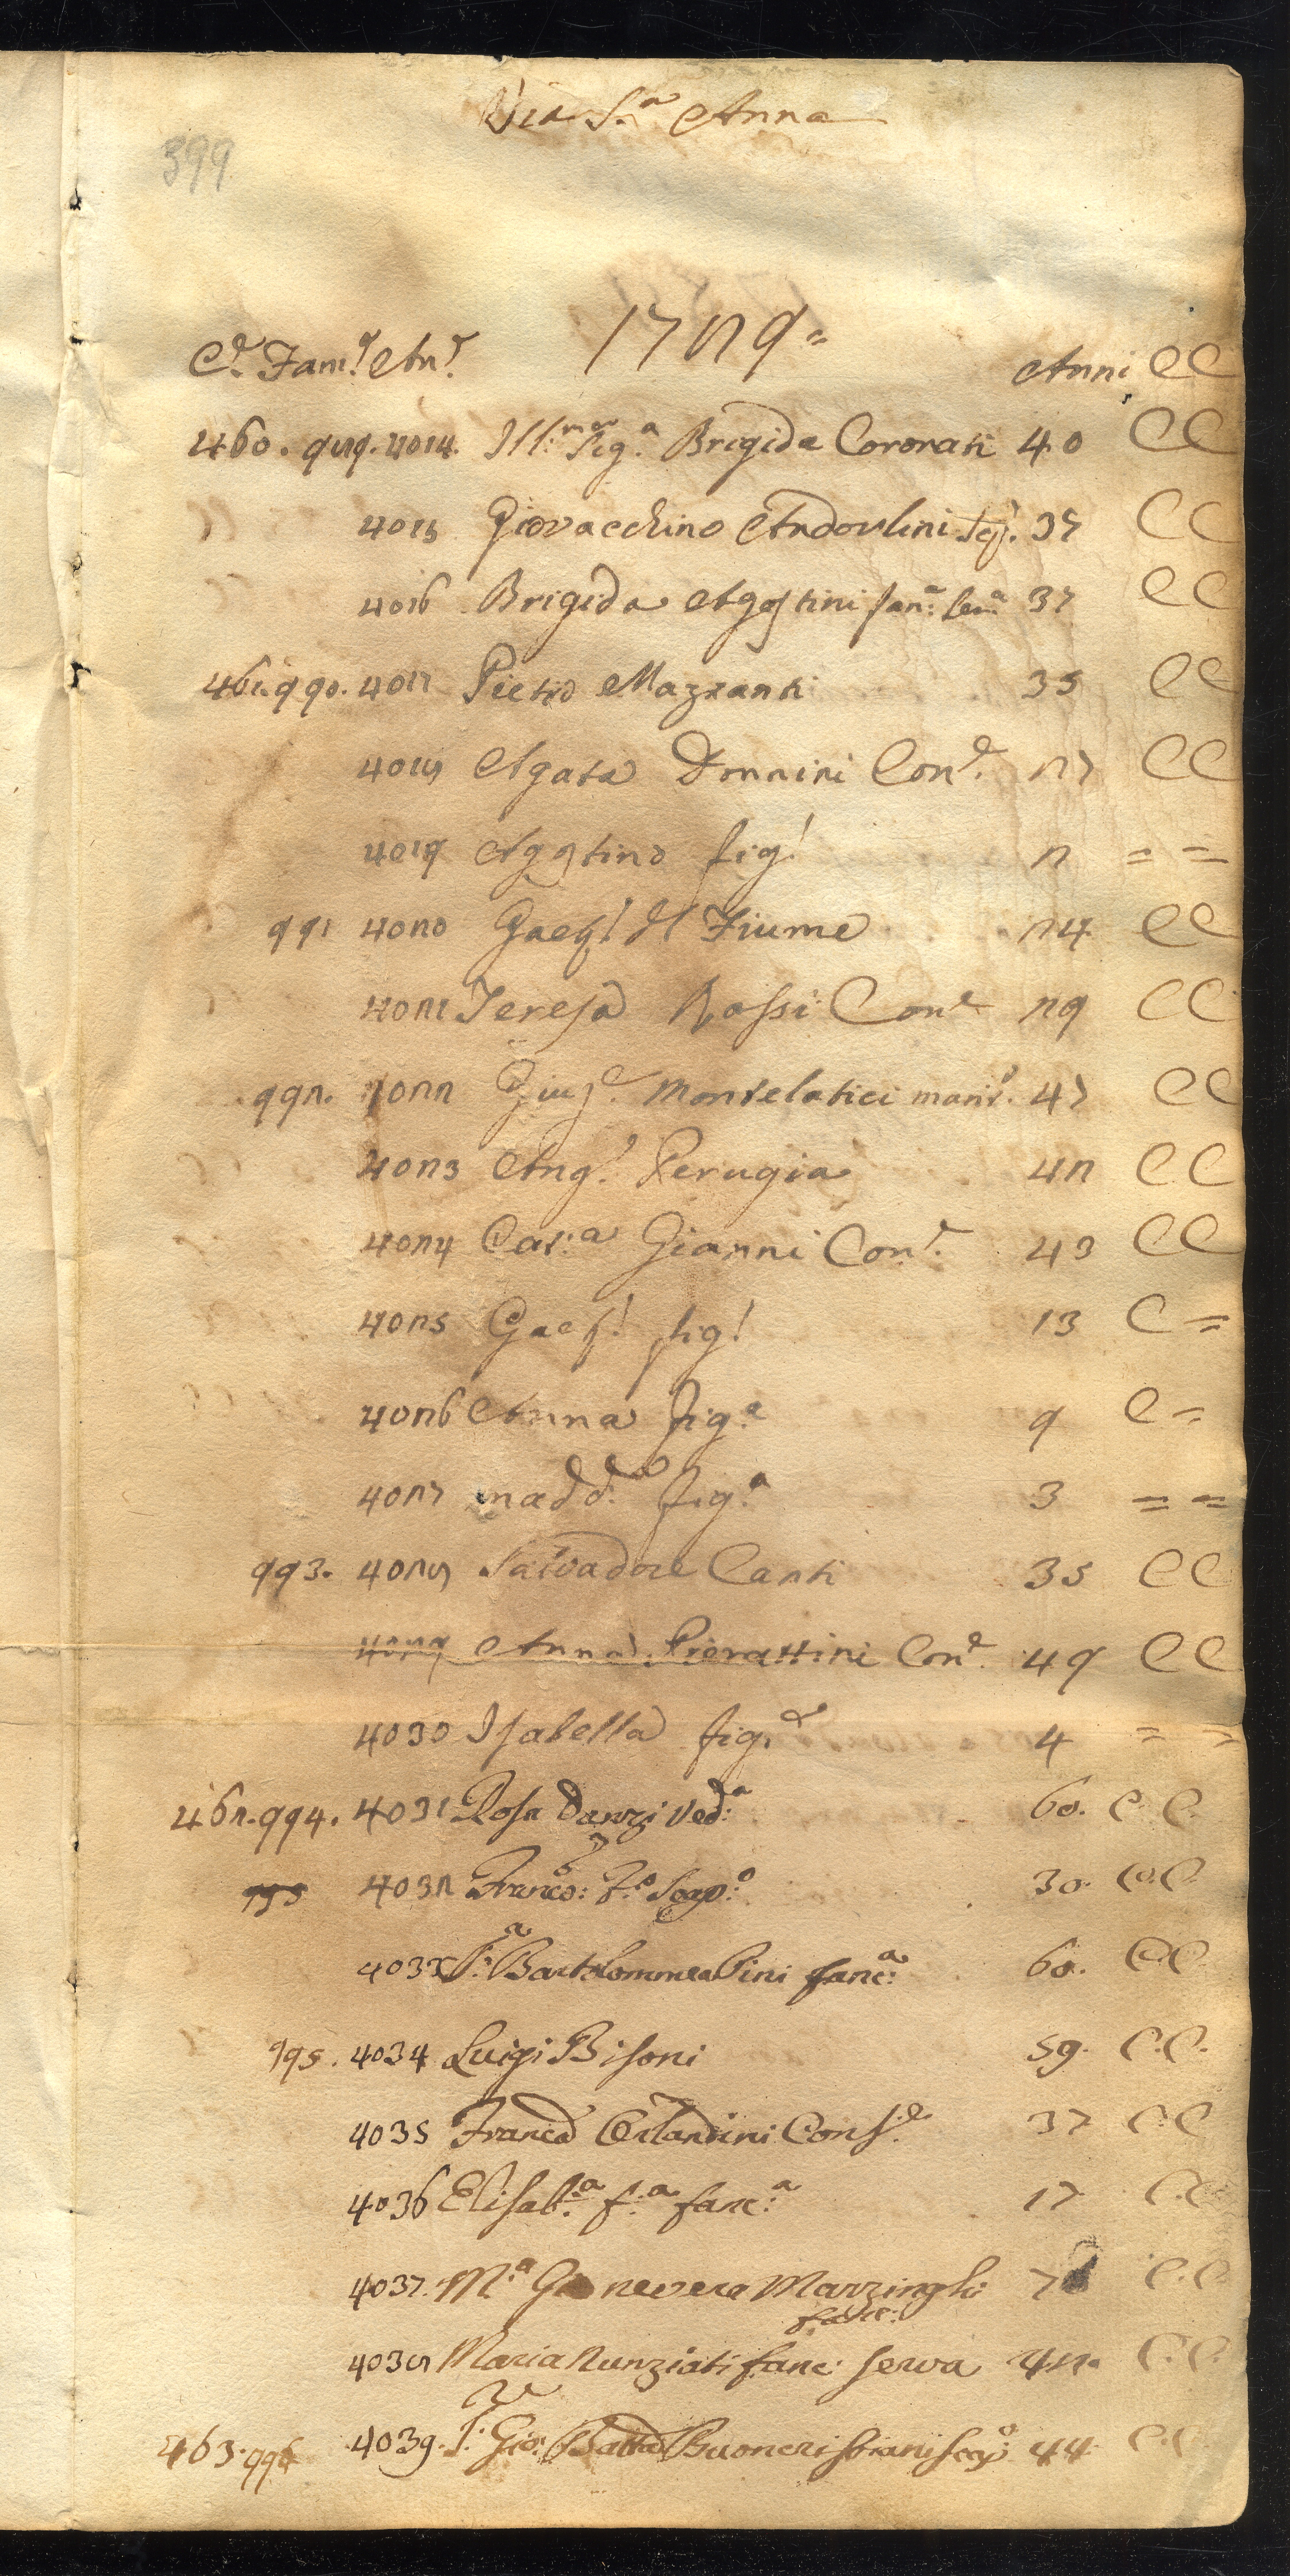 Via S.a Anna
399
1729=
C.e Fam.e An.e Anni CC
460. 989. 4014. Ill.ma Sig.a Brigida Cororati 40 CC
4015 Giovacchino Andoulini 37 CC
4016 Brigida Agostini fan.a ser.a 37 CC
461. 990. 4017 Pietro Mazzanti 35 CC
4018 Agata Donnini Con.e 27 CC
4019 Agostino fig.o 2 = =
991 4020 Gaet.o del Fiume 24 CC
4021 Teresa Rossi Con.e 29 CC
992. 4022 Giuse.e Montelatici 47 CC
4023 Ang.o Perugia 42 CC
4024 Cat.a Gianni Con.e 43 CC
4025 Gaet.o fig.o 13 C =
4026 Anna fig.a 9 C =
4027 Madd.a fig.a 3 = =
993. 4028 Salvadore Canti 35 CC
4029 Anna Pierattini Con.e 49 CC
4030 Isabella fig.a 4 = =
462. 994. 4031 Rosa Danzi Ved.a 60. C. C.
995 4032 Franc.o f.o Scap.o 30. C.C.
4033 S.a Bartolommea Pini fanc.a 60. C.C.
995. 4034 Luigi Bisoni 59. C.C.
4035 Franc.a Orlandini Cons.e 37 C.C
4036 Elisab.a f.a fanc.a 17 C.C.
4037. M.a Genevera Marzinghi 7 C.C.
fanc:
4038 Maria Nunziati fanc: serva 42. C.C.
463. 996 4039. Gio: Batta Buoncristiani scap.o 44 C.C